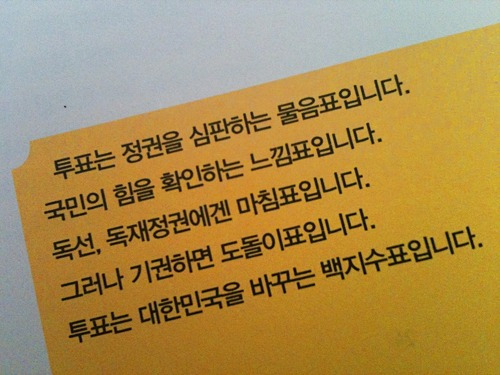 투표는 정권을 심판하는 물음표입니다.
국민의 힘을 확인하는 느낌표입니다.
독선, 독재정권에겐 마침표입니다.
그러나 기권하면 도돌이표입니다.
투표는 대한민국을 바꾸는 백지수표입니다.